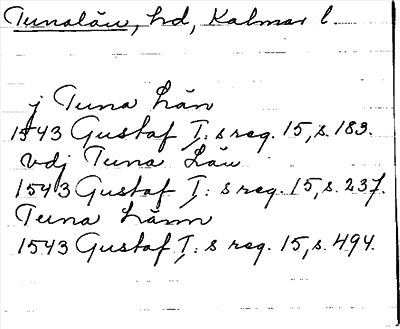 Tunalän, hd, Kalmar l.
j Tuna Län
1543 Gustaf I: s reg. 15, s. 183.
vdj Tuna Län
1543 Gustaf I: s reg. 15, s. 237.
Tuna Länn
1543 Gustaf I: s reg. 15, s. 494.